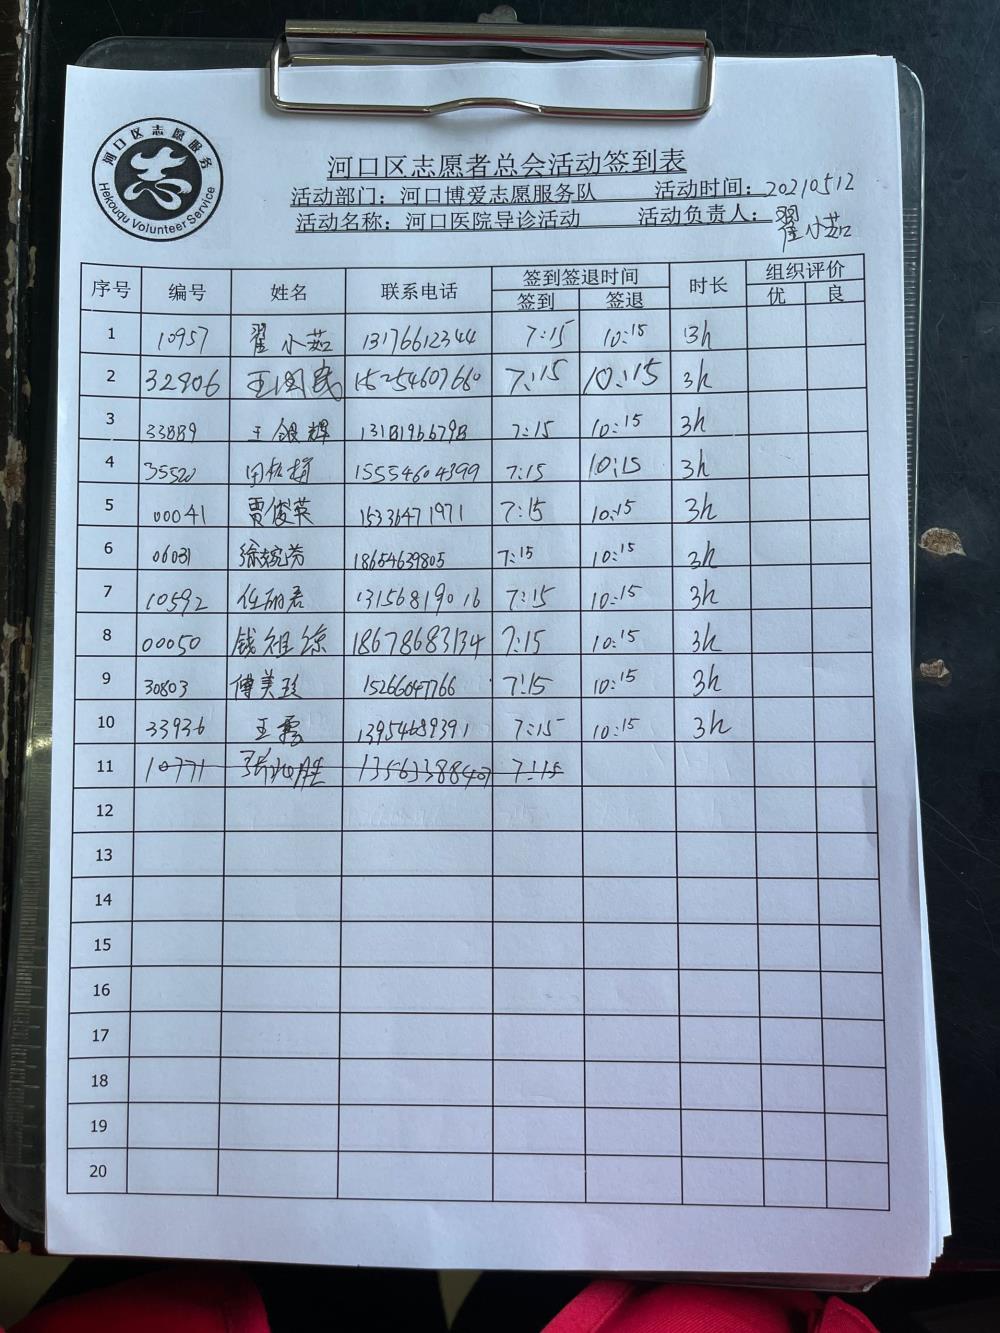 河口区志愿服务
Hekouqu Volunteer Service
河口区志愿者总会活动签到表
活动部门：河口博爱志愿服务队 活动时间：20210512
活动名称：河口医院导诊活动 活动负责人：翟小茹
序号 编号 姓名 联系电话 签到签退时间 时长 组织评价
签到 签退 优 良
1 10957 翟小茹 13176612344 7:15 10:15 3h
2 32906 王国民 15254607660 7:15 10:15 3h
3 33889 王银辉 13181966798 7:15 10:15 3h
4 35520 15554604399 7:15 10:15 3h
5 00041 贾俊英 15336471971 7:15 10:15 3h
6 06031 徐婉芳 18654639805 7:15 10:15 3h
7 10592 任丽君 13156819016 7:15 10:15 3h
8 00050 钱祖琼 18678683134 7:15 10:15 3h
9 30803 傅美玲 15266047766 7:15 10:15 3h
10 33936 王秀 13954689391 7:15 10:15 3h
11 10771 13563388407 7:15
12
13
14
15
16
17
18
19
20